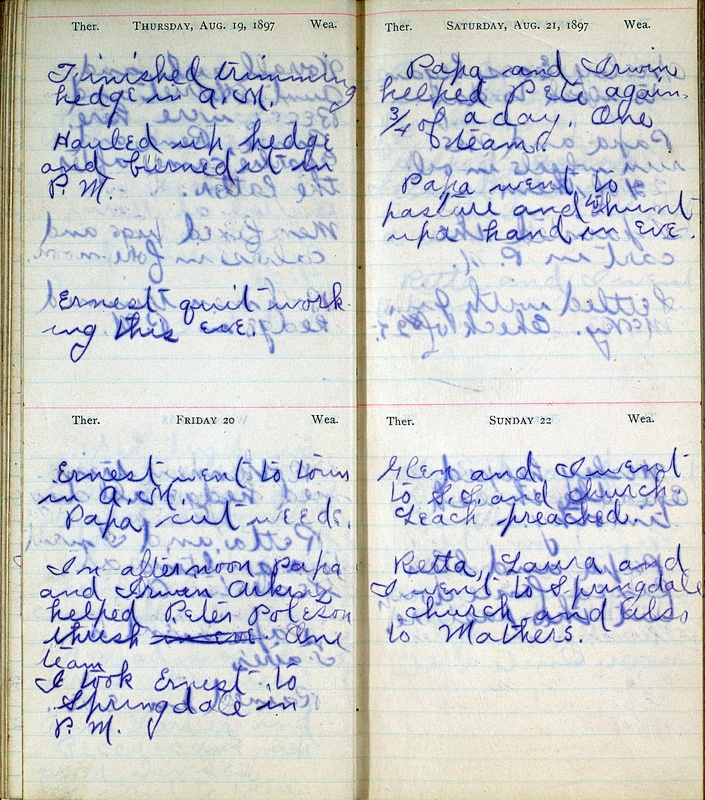 Ther. THURSDAY, AUG. 19, 1897 Wea.
Finished trimming
hedge in A.M.
Hauled up hedge
and burned it in
P.M.
Ernest quit work-
ing this eve.
Ther. FRIDAY 20 Wea.
Ernest went to town
in A.M.
Papa cut weeds.
In afternoon Papa
and Irwin Arkins
helped Peter Poleson
thresh in eve One
team
I took Ernest to
Springdale in
P.M.
Ther. SATURDAY, AUG. 21, 1897 Wea.
Papa and Irwin
helped Pete again.
3/4 of a day. One
team.
Papa went to
pasture and to hunt
up a hand in eve.
Ther. SUNDAY 22 Wea.
Glen and I went
to S.S. and church
Leach preached.
Retta, Laura and
I went to Springdale
church and also
to Mathers.